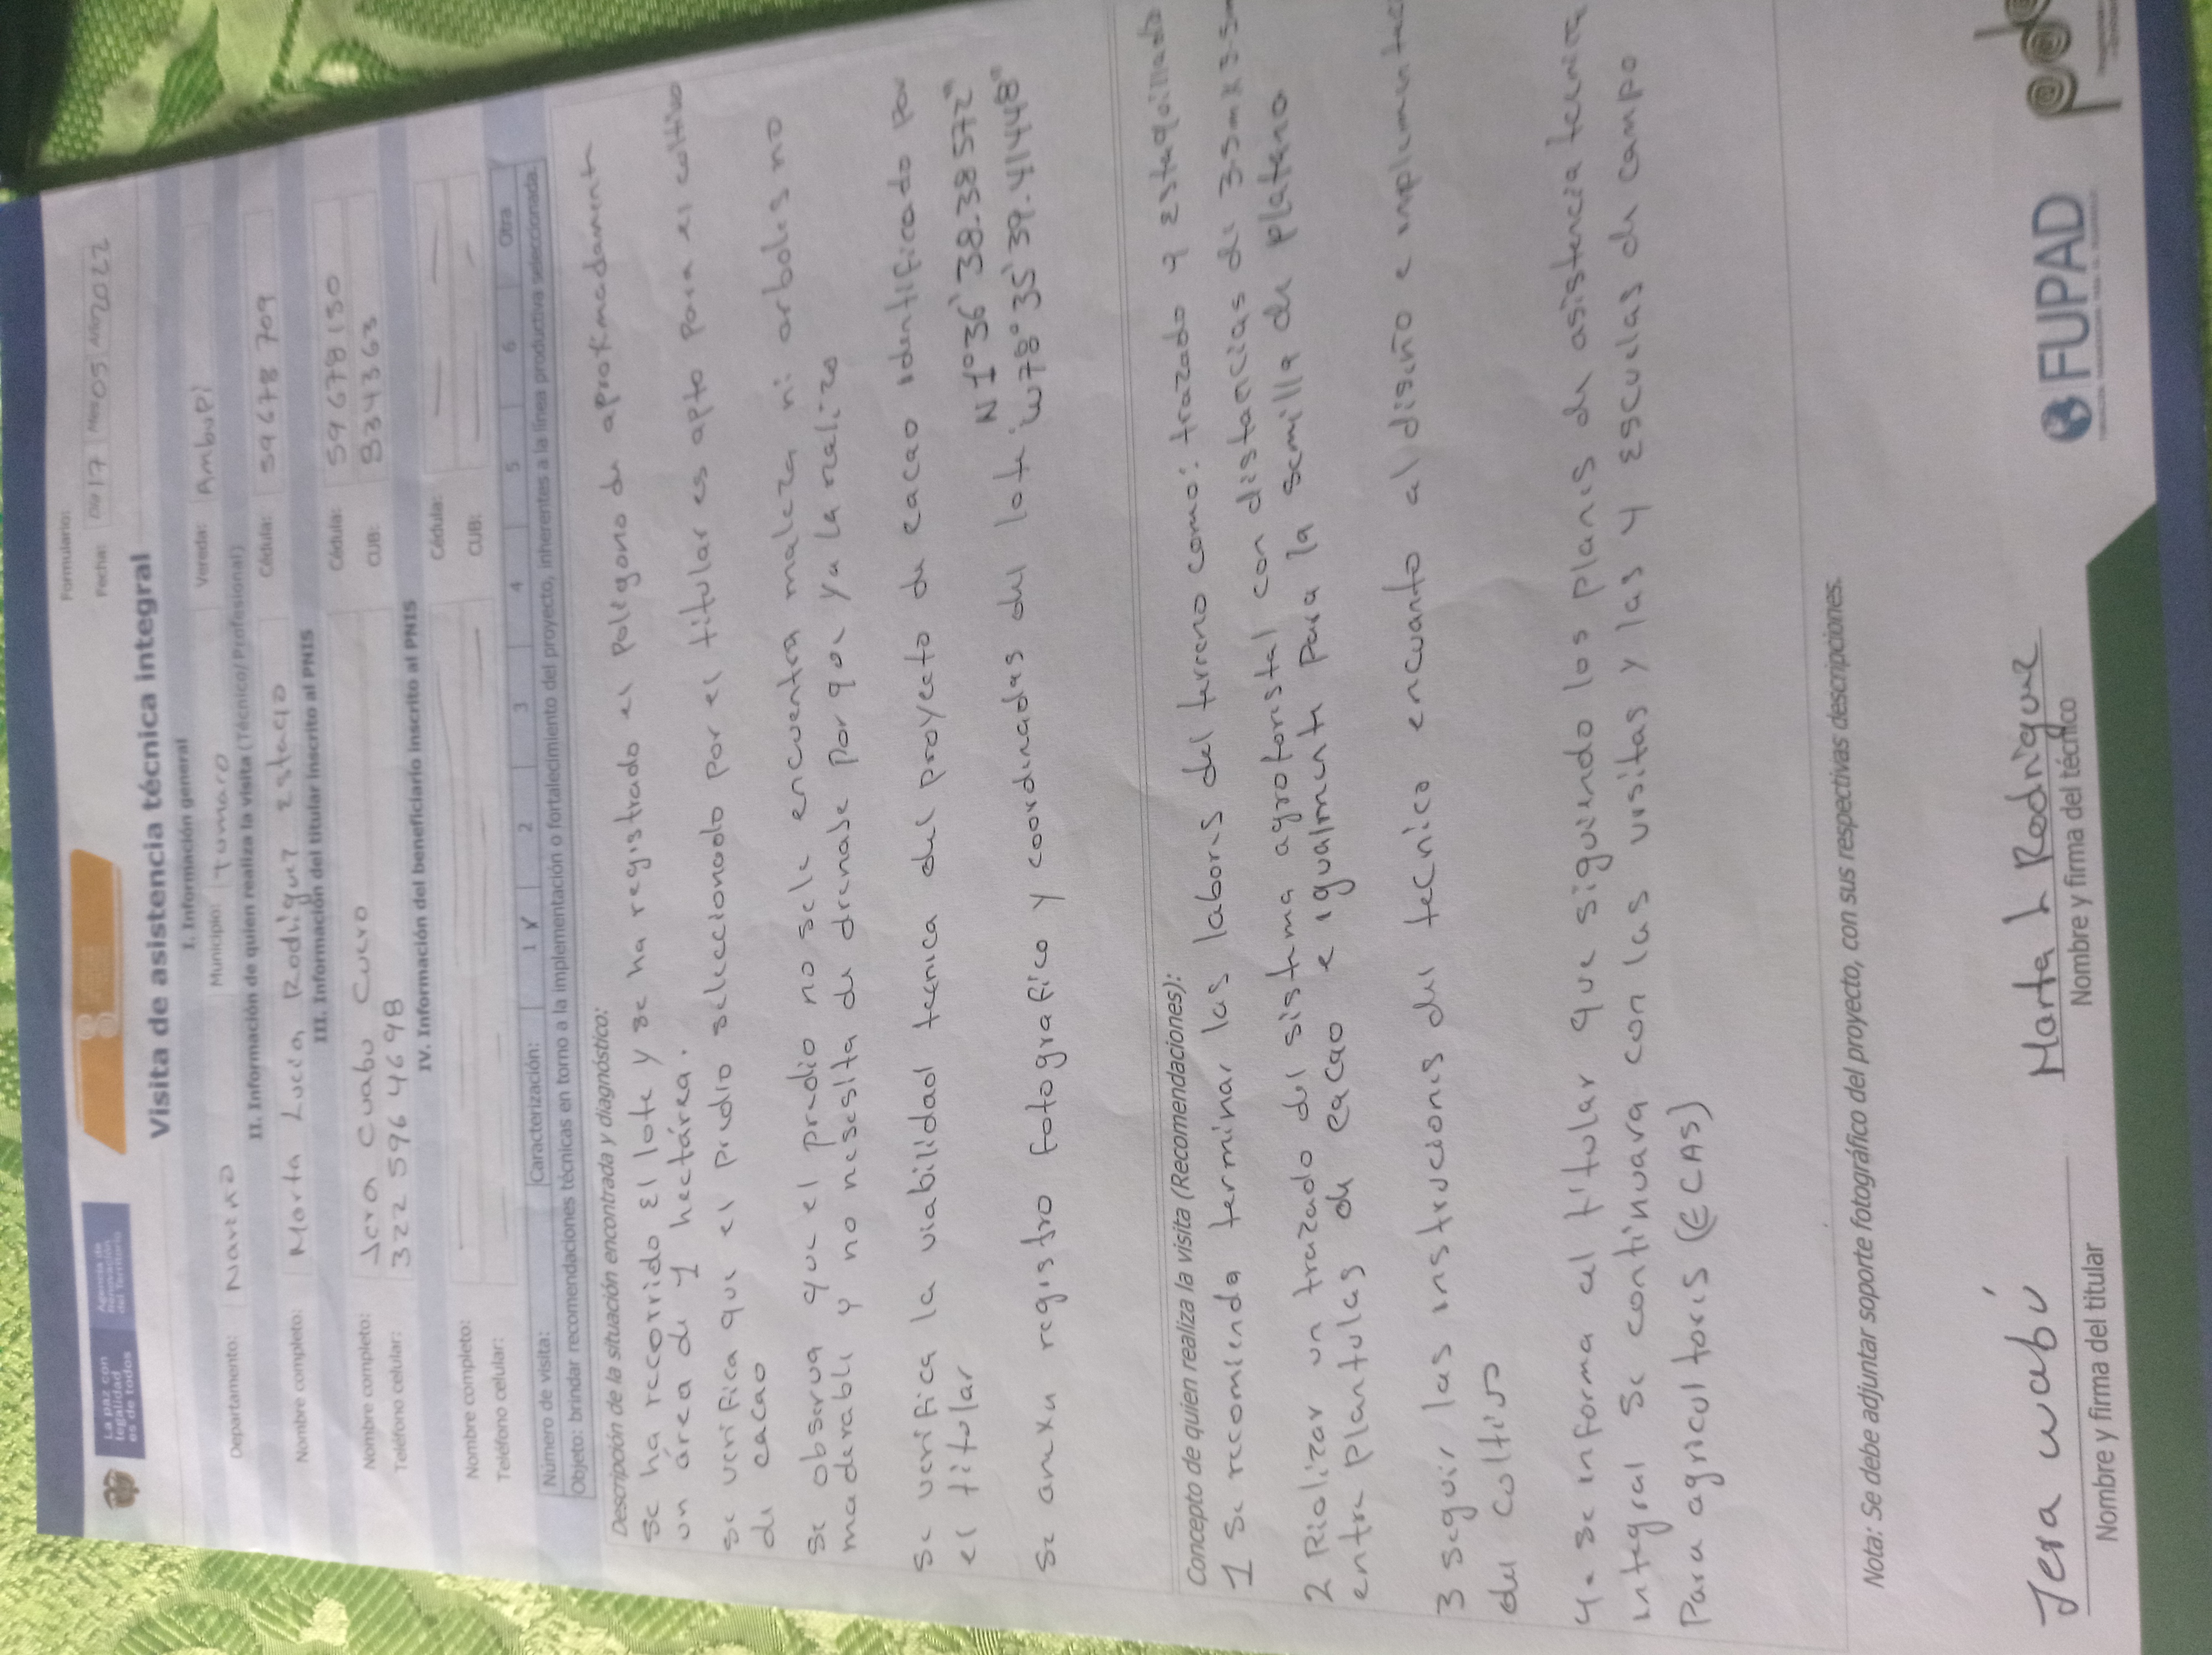 La paz con
legalidad
es de todos
Agencia de
Renovación
del Territorio
Formulario:
Fecha: Día 17 Mes 05 Año 2022
Visita de asistencia técnica integral
I. Información general
Departamento: Nariño Municipio: Tumaco Vereda: Ambupi
II. Información de quien realiza la visita (Técnico/Profesional)
Nombre completo: Marta Lucia Rodriguez Estacio Cédula: 59678709
III. Información del titular inscrito al PNIS
Nombre completo: Jera Cuabu Cuero Cédula: 59678150
Teléfono celular: 322 596 4698 CUB: 834363
IV. Información del beneficiario inscrito al PNIS
Nombre completo: Cédula:
Teléfono celular: CUB:
Número de visita: Caracterización: 1 X 2 3 4 5 6 Otra
Objeto: brindar recomendaciones técnicas en torno a la implementación o fortalecimiento del proyecto, inherentes a la línea productiva seleccionada.
Descripción de la situación encontrada y diagnóstico:
se ha recorrido El lote y se ha registrado el Polegono de aproximadamente
un área de 1 hectárea.
se verifica que el predio seleccionado por el titular es apto para el cultivo
de cacao
se observa que el predio no sele encuentra maleza ni arboles no
maderable y no nesesita de drenase por que ya la realizo
se verifica la viabilidad tecnica del proyecto de cacao identificado por
el titular
N 1°36'38.38572"
se anexa registro fotografico y coordenadas del lote W78°35'39.41448"
Concepto de quien realiza la visita (Recomendaciones):
1 se recomienda terminar las labores del terreno como: trazado y Estaquillado
2 Rializar un trazado del sistema agroforestal con distancias de 3.5mx3.5m
entre plantulas de cacao e igualmente para la semilla de platano
3 seguir las instruciones del tecnico encuanto al diseño e implementac
del cultivo
4. se informa al titular que siguiendo los planes de asistencia tecnica
integral se continuara con las visitas y las 4 Escuelas de campo
Para agricultores (ECAS)
Nota: Se debe adjuntar soporte fotográfico del proyecto, con sus respectivas descripciones.
Jera wabú Marta L Rodrigue
Nombre y firma del titular Nombre y firma del técnico
FUPAD